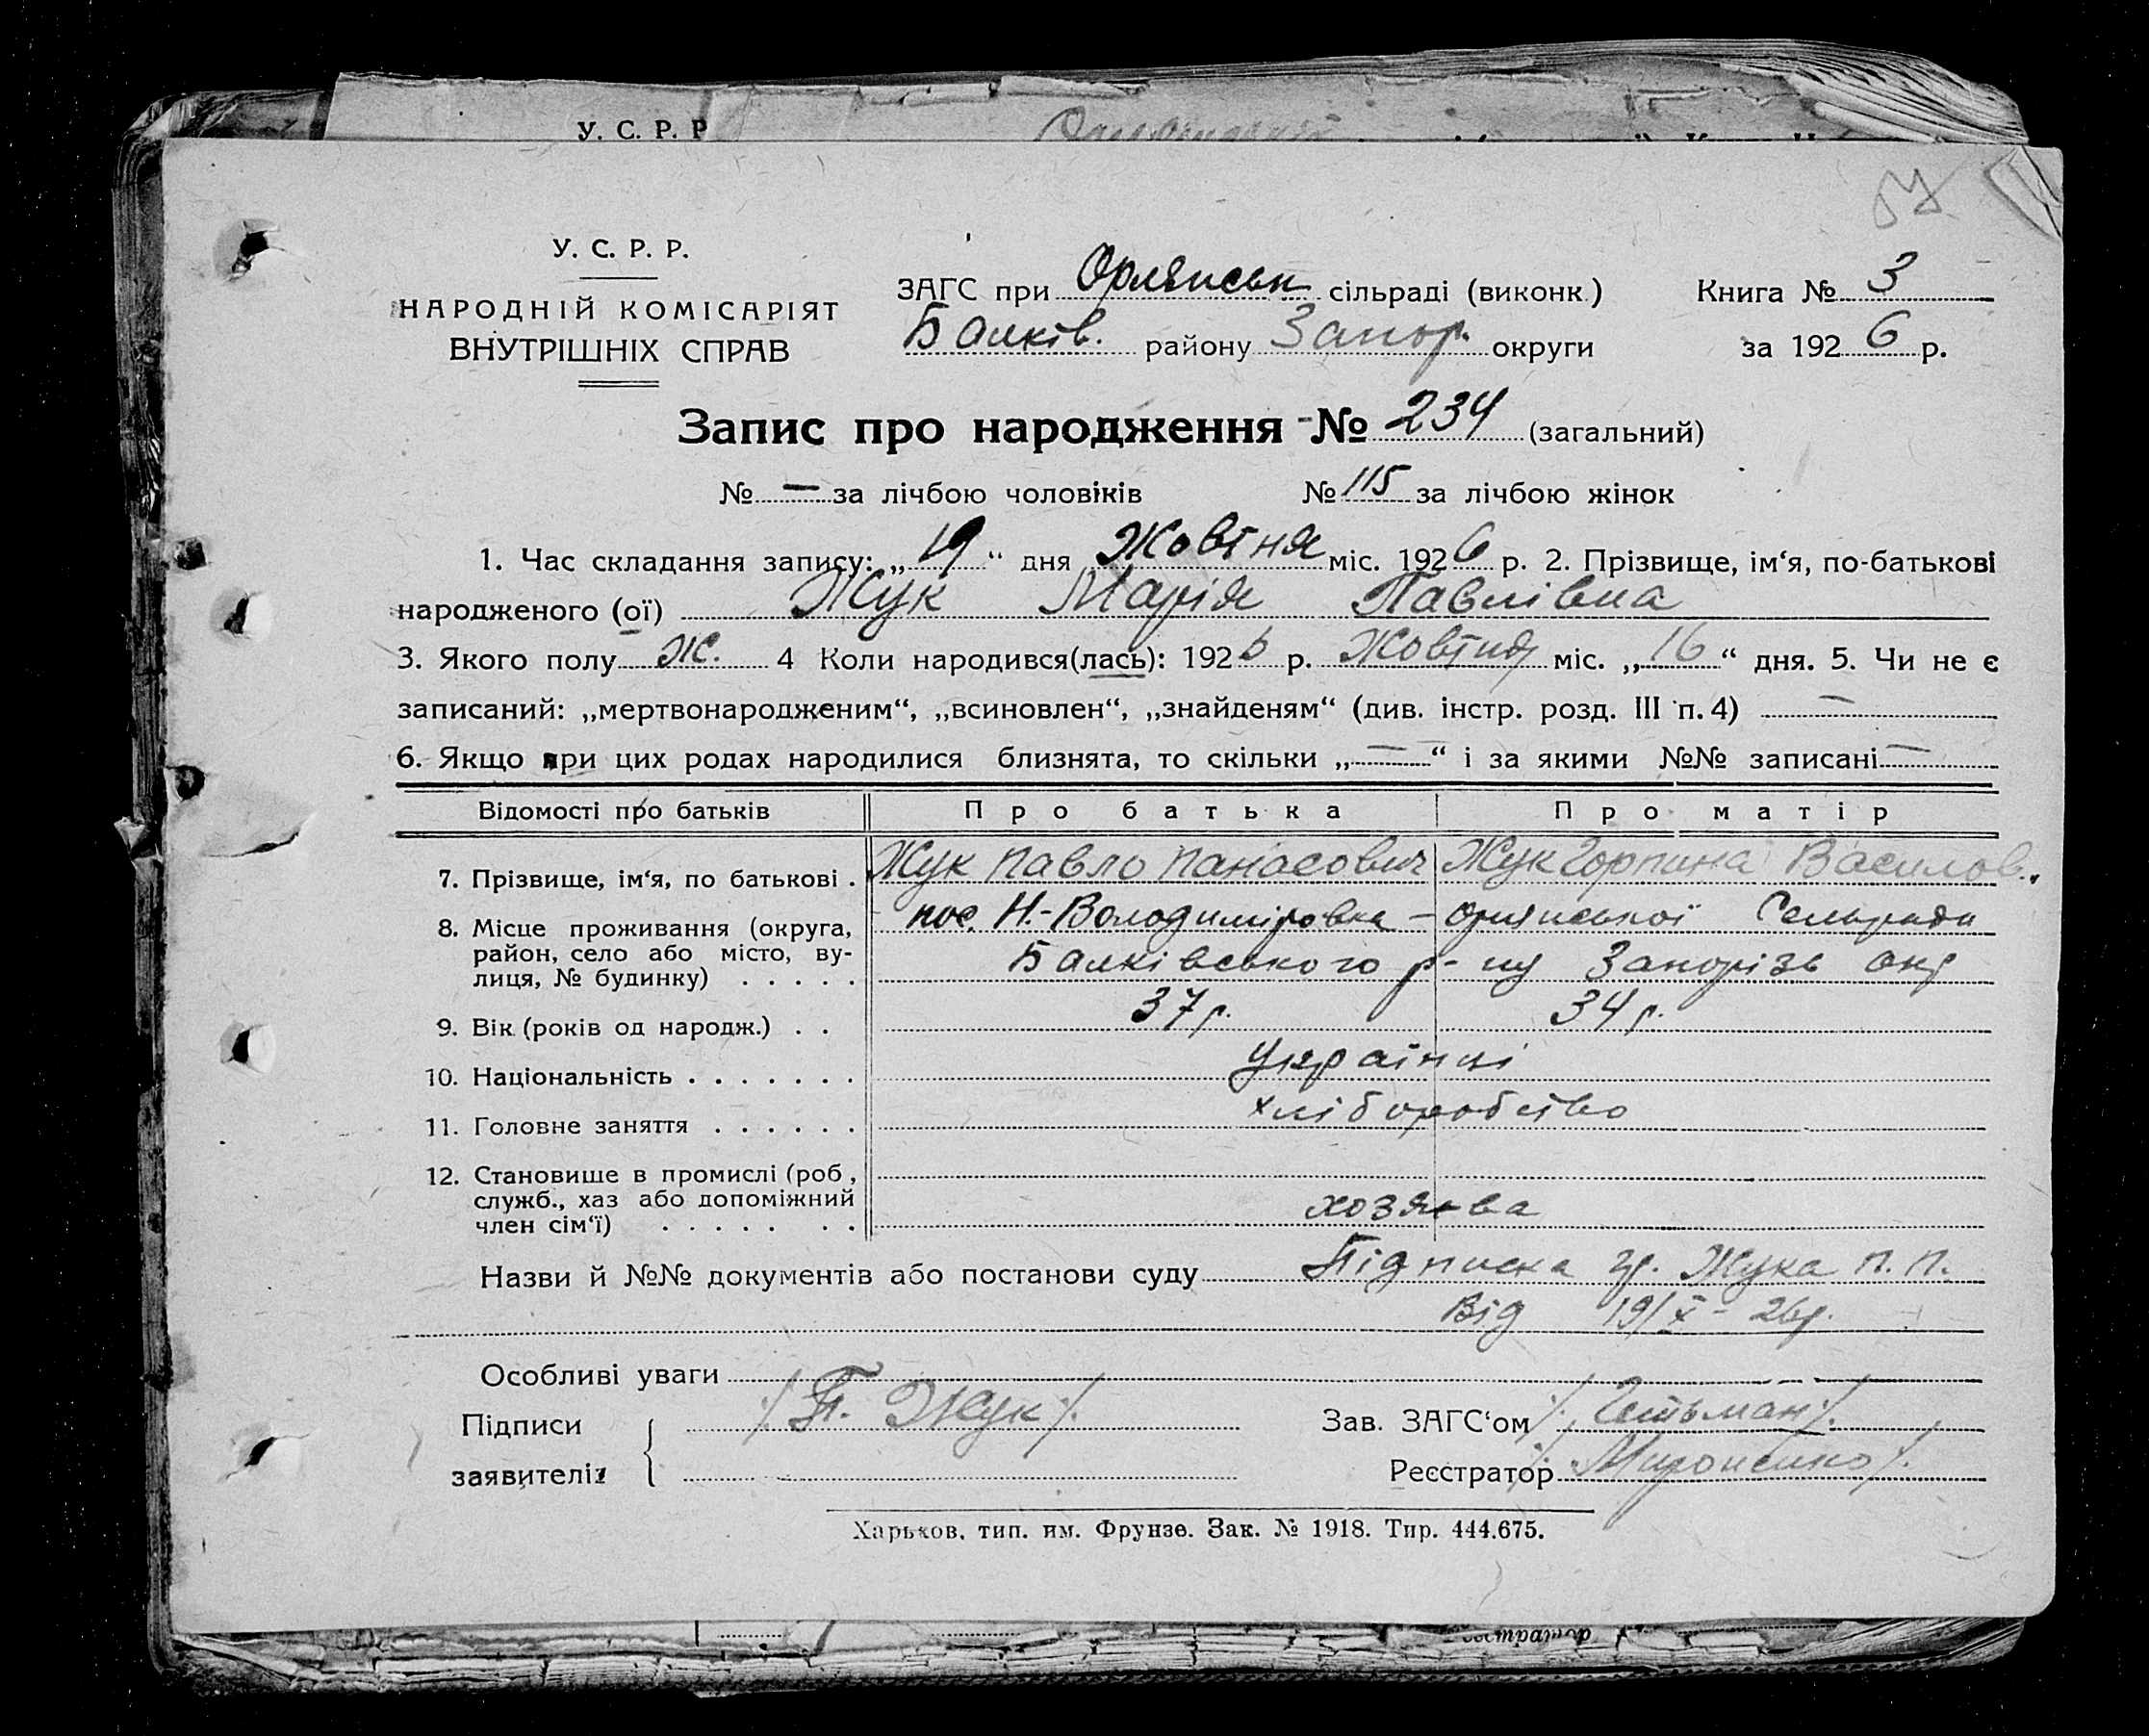 У. С. Р. Р
У. С. Р. Р.
НАРОДНІЙ КОМІСАРІЯТ
ВНУТРІШНІХ СПРАВ
ЗАГС при Орлянськ сільраді (виконк.)
Балків. району Запор. округи
Книга № 3
за 1926 р.
Запис про народження № 234 (загальний)
№ — за лічбою чоловіків № 115 за лічбою жінок
1. Час складання запису: „19“ дня Жовтня міс. 1926 р. 2. Прізвище, ім‘я, по-батькові
народженого (ої) Жук Марія Павлівна
3. Якого полу Ж. 4 Коли народився(лась): 1926 р. Жовтня міс. „16“ дня. 5. Чи не є
записаний: „мертвонародженим“, „всиновлен“, „знайденям“ (див. інстр. розд. III п. 4) —
6. Якщо при цих родах народилися близнята, то скільки „—“ і за якими №№ записані —
Відомості про батьків Про батька Про матір
7. Прізвище, ім‘я, по батькові . Жук Павло Панасович Жук Горпина Василов.
8. Місце проживання (округа, район, село або місто, вулиця, № будинку) . . . . . пос. Н.-Володиміровка – Орлянської Сельради
Балківського р-ну Запорізь окр
9. Вік (років од народж.) . . 37 р. 34 р.
10. Національність . . . . . . . Українці
11. Головне заняття . . . . . . хліборобство
12. Становище в промислі (роб, служб., хаз або допоміжний член сім‘ї) . . . . . . . хозяева
Назви й №№ документів або постанови суду Підписка гр. Жука П. П.
від 19/X – 26 р.
Особливі уваги
Підписи
заявителів
/ П. Жук /.
Зав. ЗАГС‘ом /. Гетьман /.
Реєстратор /. Мироненко /.
Харьков, тип. им. Фрунзе. Зак. № 1918. Тир. 444.675.